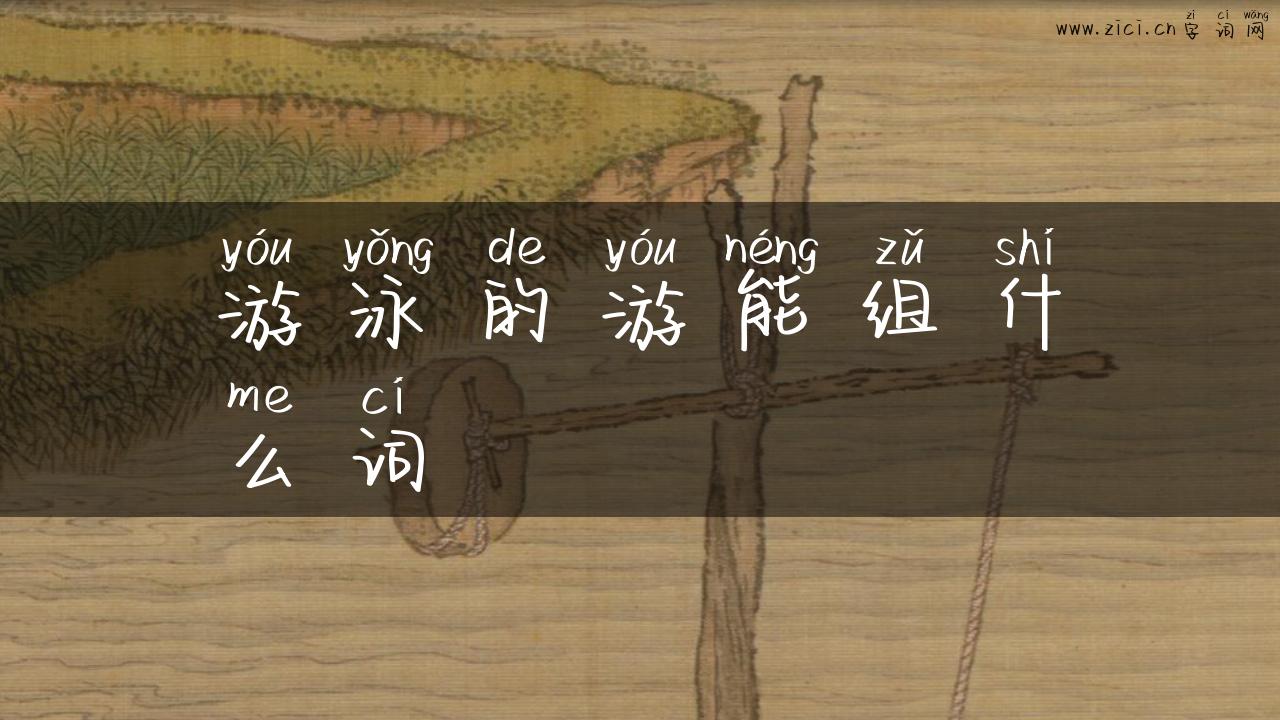 zì cí wǎng
www.zici.cn字词网
yóu yǒng de yóu néng zǔ shí
游泳的游能组什
me cí
么词